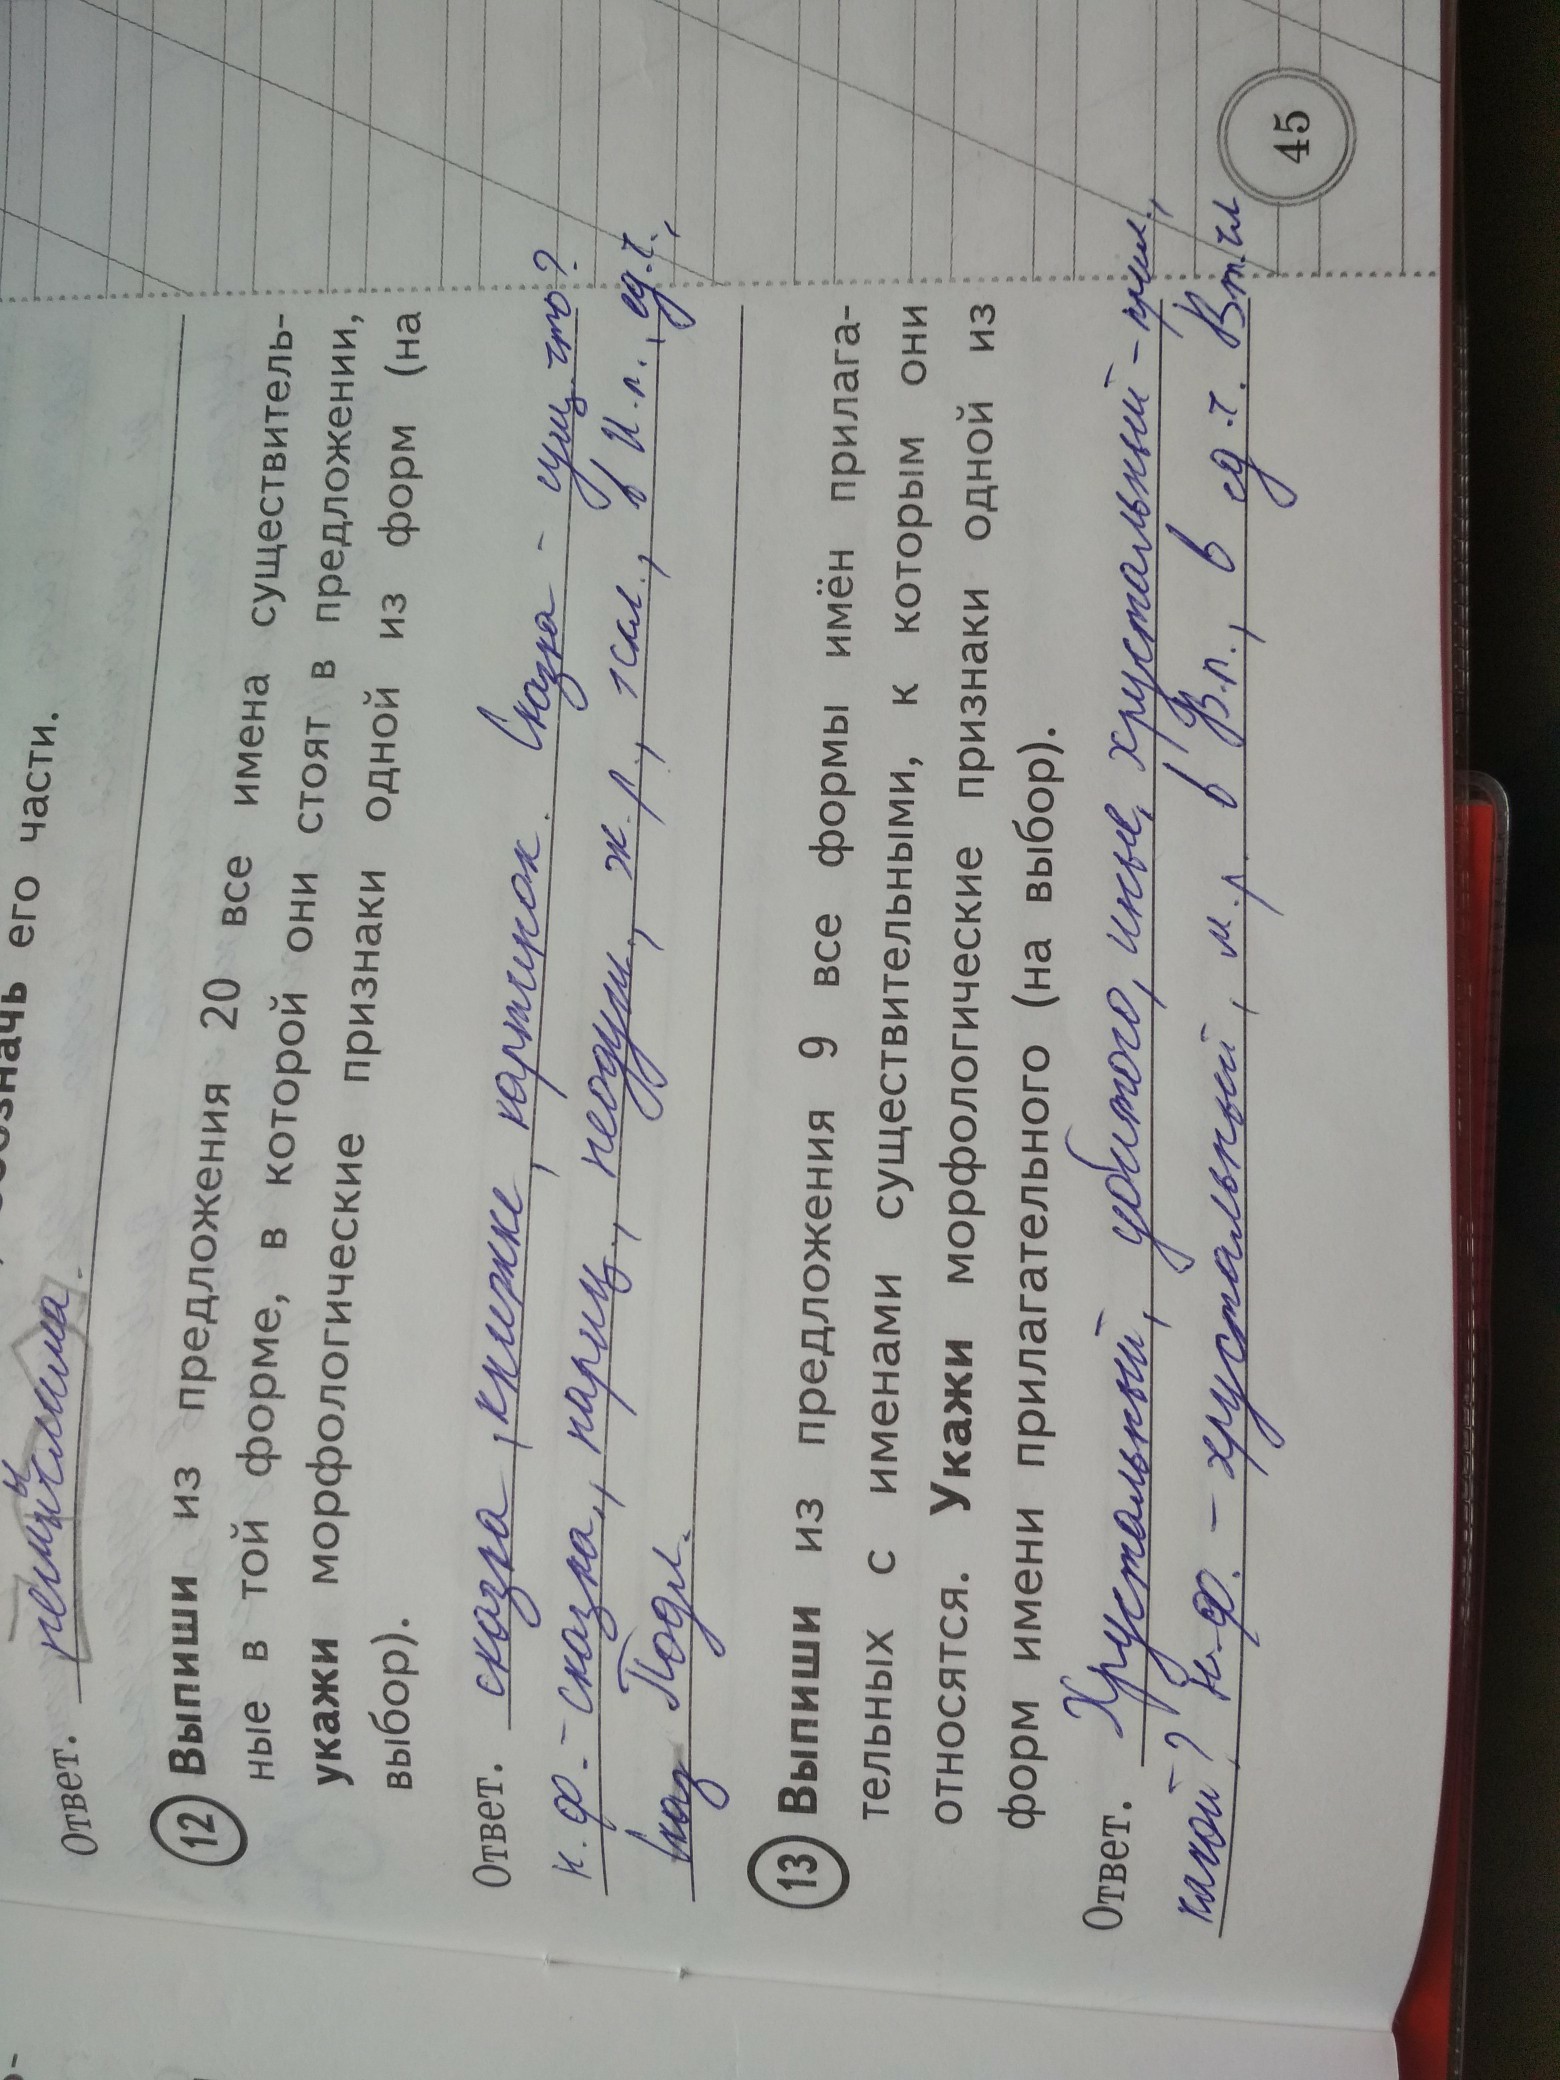 обозначь его части.
Ответ. немыслима.
12 Выпиши из предложения 20 все имена существитель-
ные в той форме, в которой они стоят в предложении,
укажи морфологические признаки одной из форм (на
выбор).
Ответ. сказка, книжке, картинок. Сказка – сущ. что?
н.ф. – сказка, нариц., неодуш., ж.р., 1скл., в И.п., ед.ч.,
Подл.
13 Выпиши из предложения 9 все формы имён прилага-
тельных с именами существительными, к которым они
относятся. Укажи морфологические признаки одной из
форм имени прилагательного (на выбор).
Ответ. Хрустальный, убитого, иные, хрустальный – прил.,
какой? н.ф. – хрустальный, м.р, в В.п., в ед.ч.
45